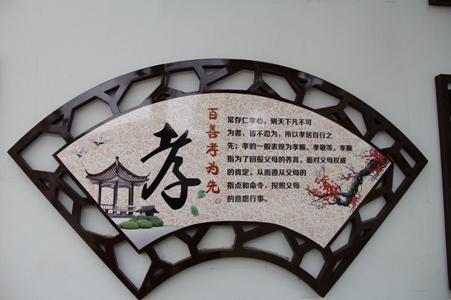 孝
百善孝为先。
常存仁孝心，则天下凡不可
为者，皆不忍为，所以孝居百行之
先；孝的一般表现为孝顺、孝敬等。孝顺
指为了回报父母的养育，面对父母权威
的肯定，从而遵从父母的
指点和命令，按照父母
的意愿行事。